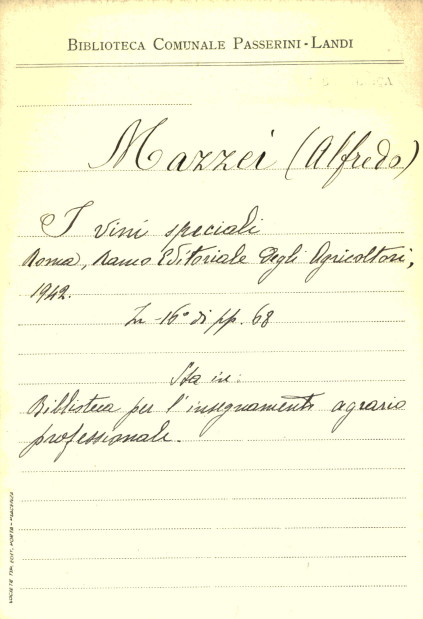 BIBLIOTECA COMUNALE PASSERINI-LANDI
Mazzei (Alfredo)
I vini speciali
Roma, Ramo Editoriale degli Agricoltori,
1942.
In-16° di pp. 68
Sta in:
Biblioteca per l'insegnamento agrario
professionale.